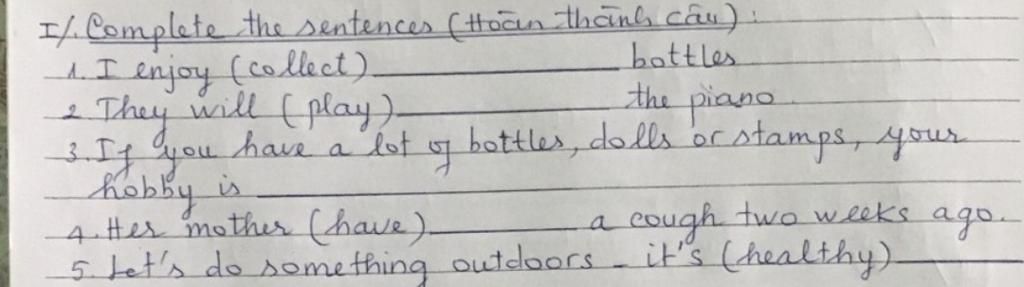 I/. Complete the sentences (Hoàn thành câu) :
1. I enjoy (collect) __________ bottles
2 They will (play) __________ the piano
3. If you have a lot of bottles, dolls or stamps, your
hobby is __________
4. Her mother (have) __________ a cough two weeks ago.
5. Let's do something outdoors - it's (healthy) __________